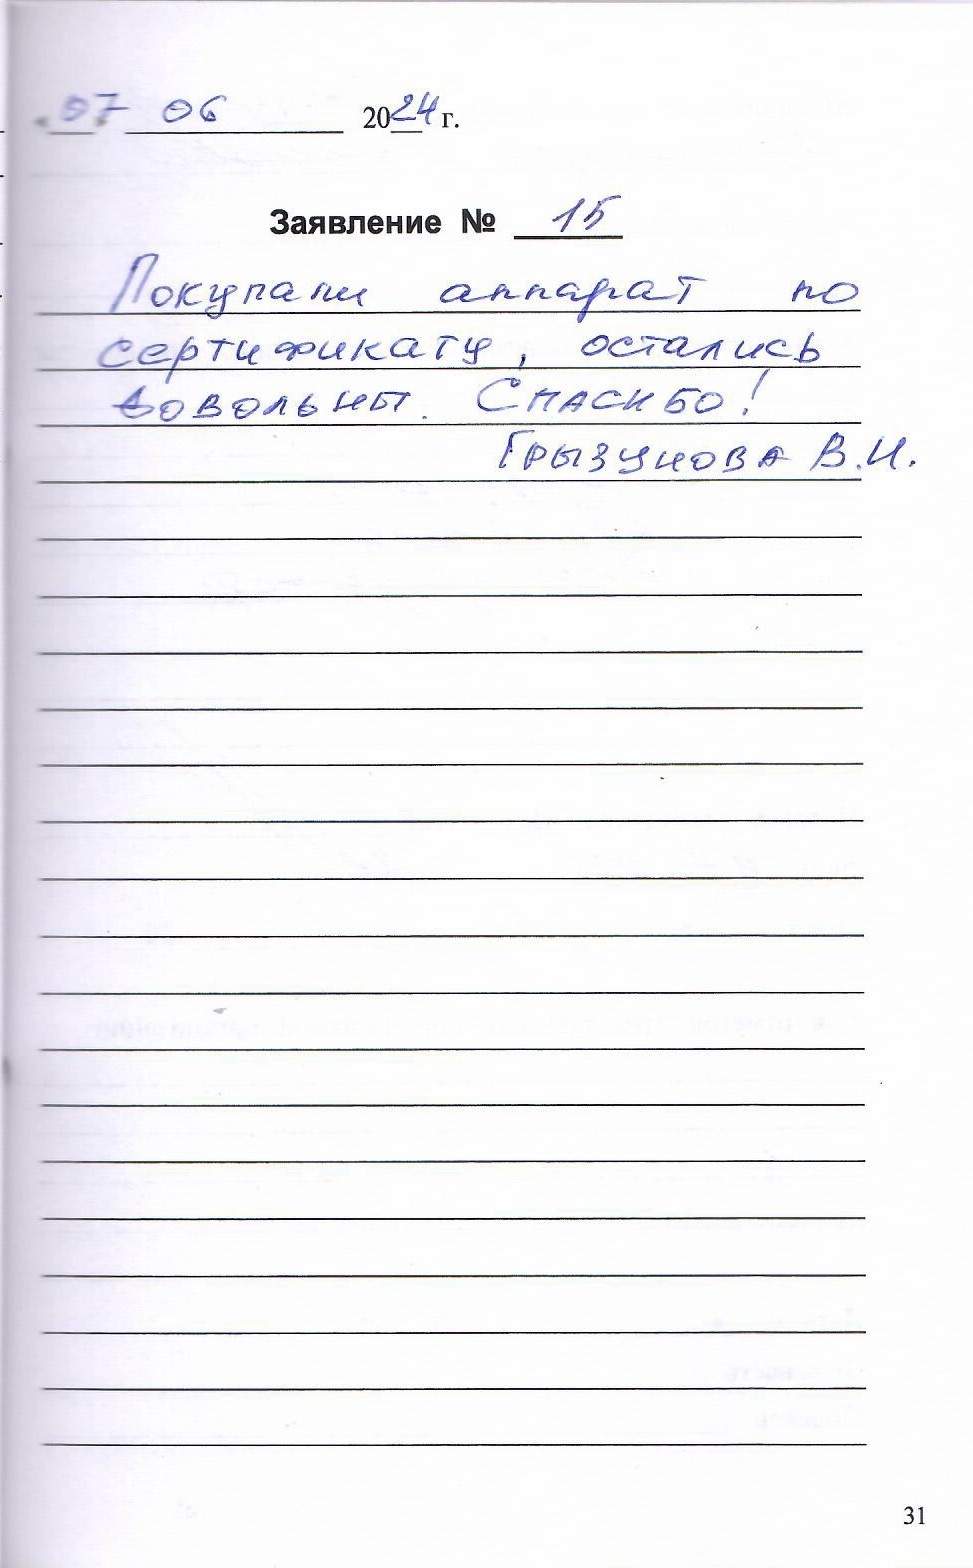 07 06 2024 г.
Заявление № 15
Покупали аппарат по
сертификату, остались
довольны. Спасибо!
Грызунова В.И.
31